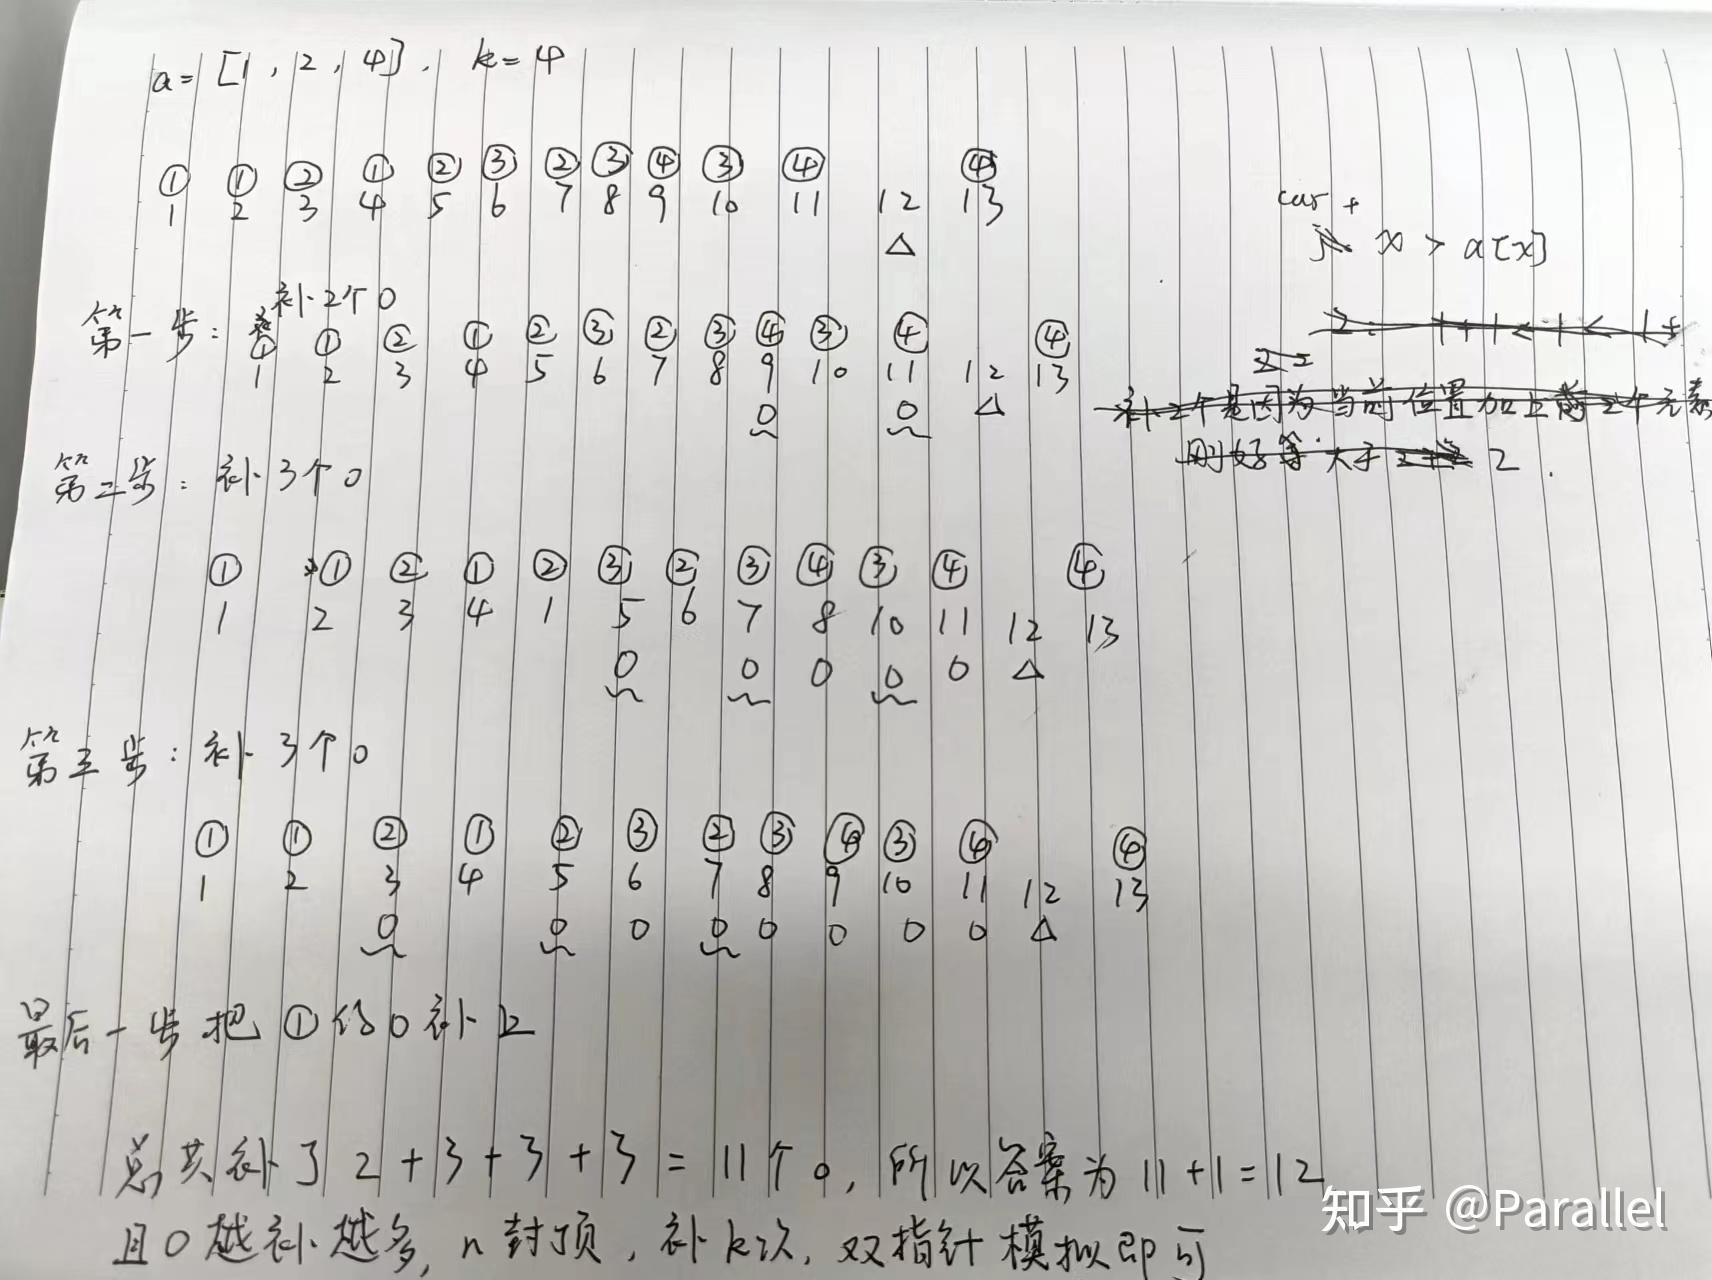 a = [1, 2, 4]. k = 4
① ① ② ① ② ③ ② ③ ④ ③ ④ ④
1 2 3 4 5 6 7 8 9 10 11 12 13
△
cur +
x > a[x]
第一步: 补2个0
① ① ② ① ② ③ ② ③ ④ ③ ④ ④
1 2 3 4 5 6 7 8 9 10 11 12 13
0 0 △
补2个是因为当前位置加上前2个元素
刚好 大于 2.
第二步: 补3个0
① ① ② ① ② ③ ② ③ ④ ③ ④ ④
1 2 3 4 1 5 6 7 8 10 11 12 13
0 0 0 0 0 △
第三步: 补3个0
① ① ② ① ② ③ ② ③ ④ ③ ④ ④
1 2 3 4 5 6 7 8 9 10 11 12 13
0 0 0 0 0 0 0 0 △
最后一步把①的0补上
总共补了 2+3+3+3=11个0, 所以答案为11+1=12
且0越补越多, n封顶, 补k次, 双指针模拟即可
知乎 @Parallel